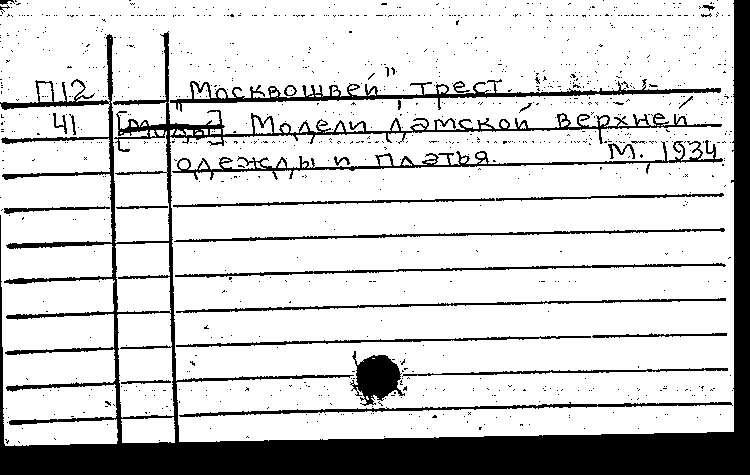 П12 "Москвошвей" трест.
41 [Моды]. Модели дамской верхней
одежды и платья. М., 1934